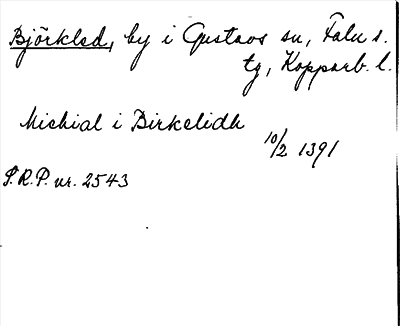 Björkled, by i Gustavs sn, Falu s.
tg, Kopparb. l.
Michial i Birkelidh
10/2 1391
S.R.P. nr. 2543